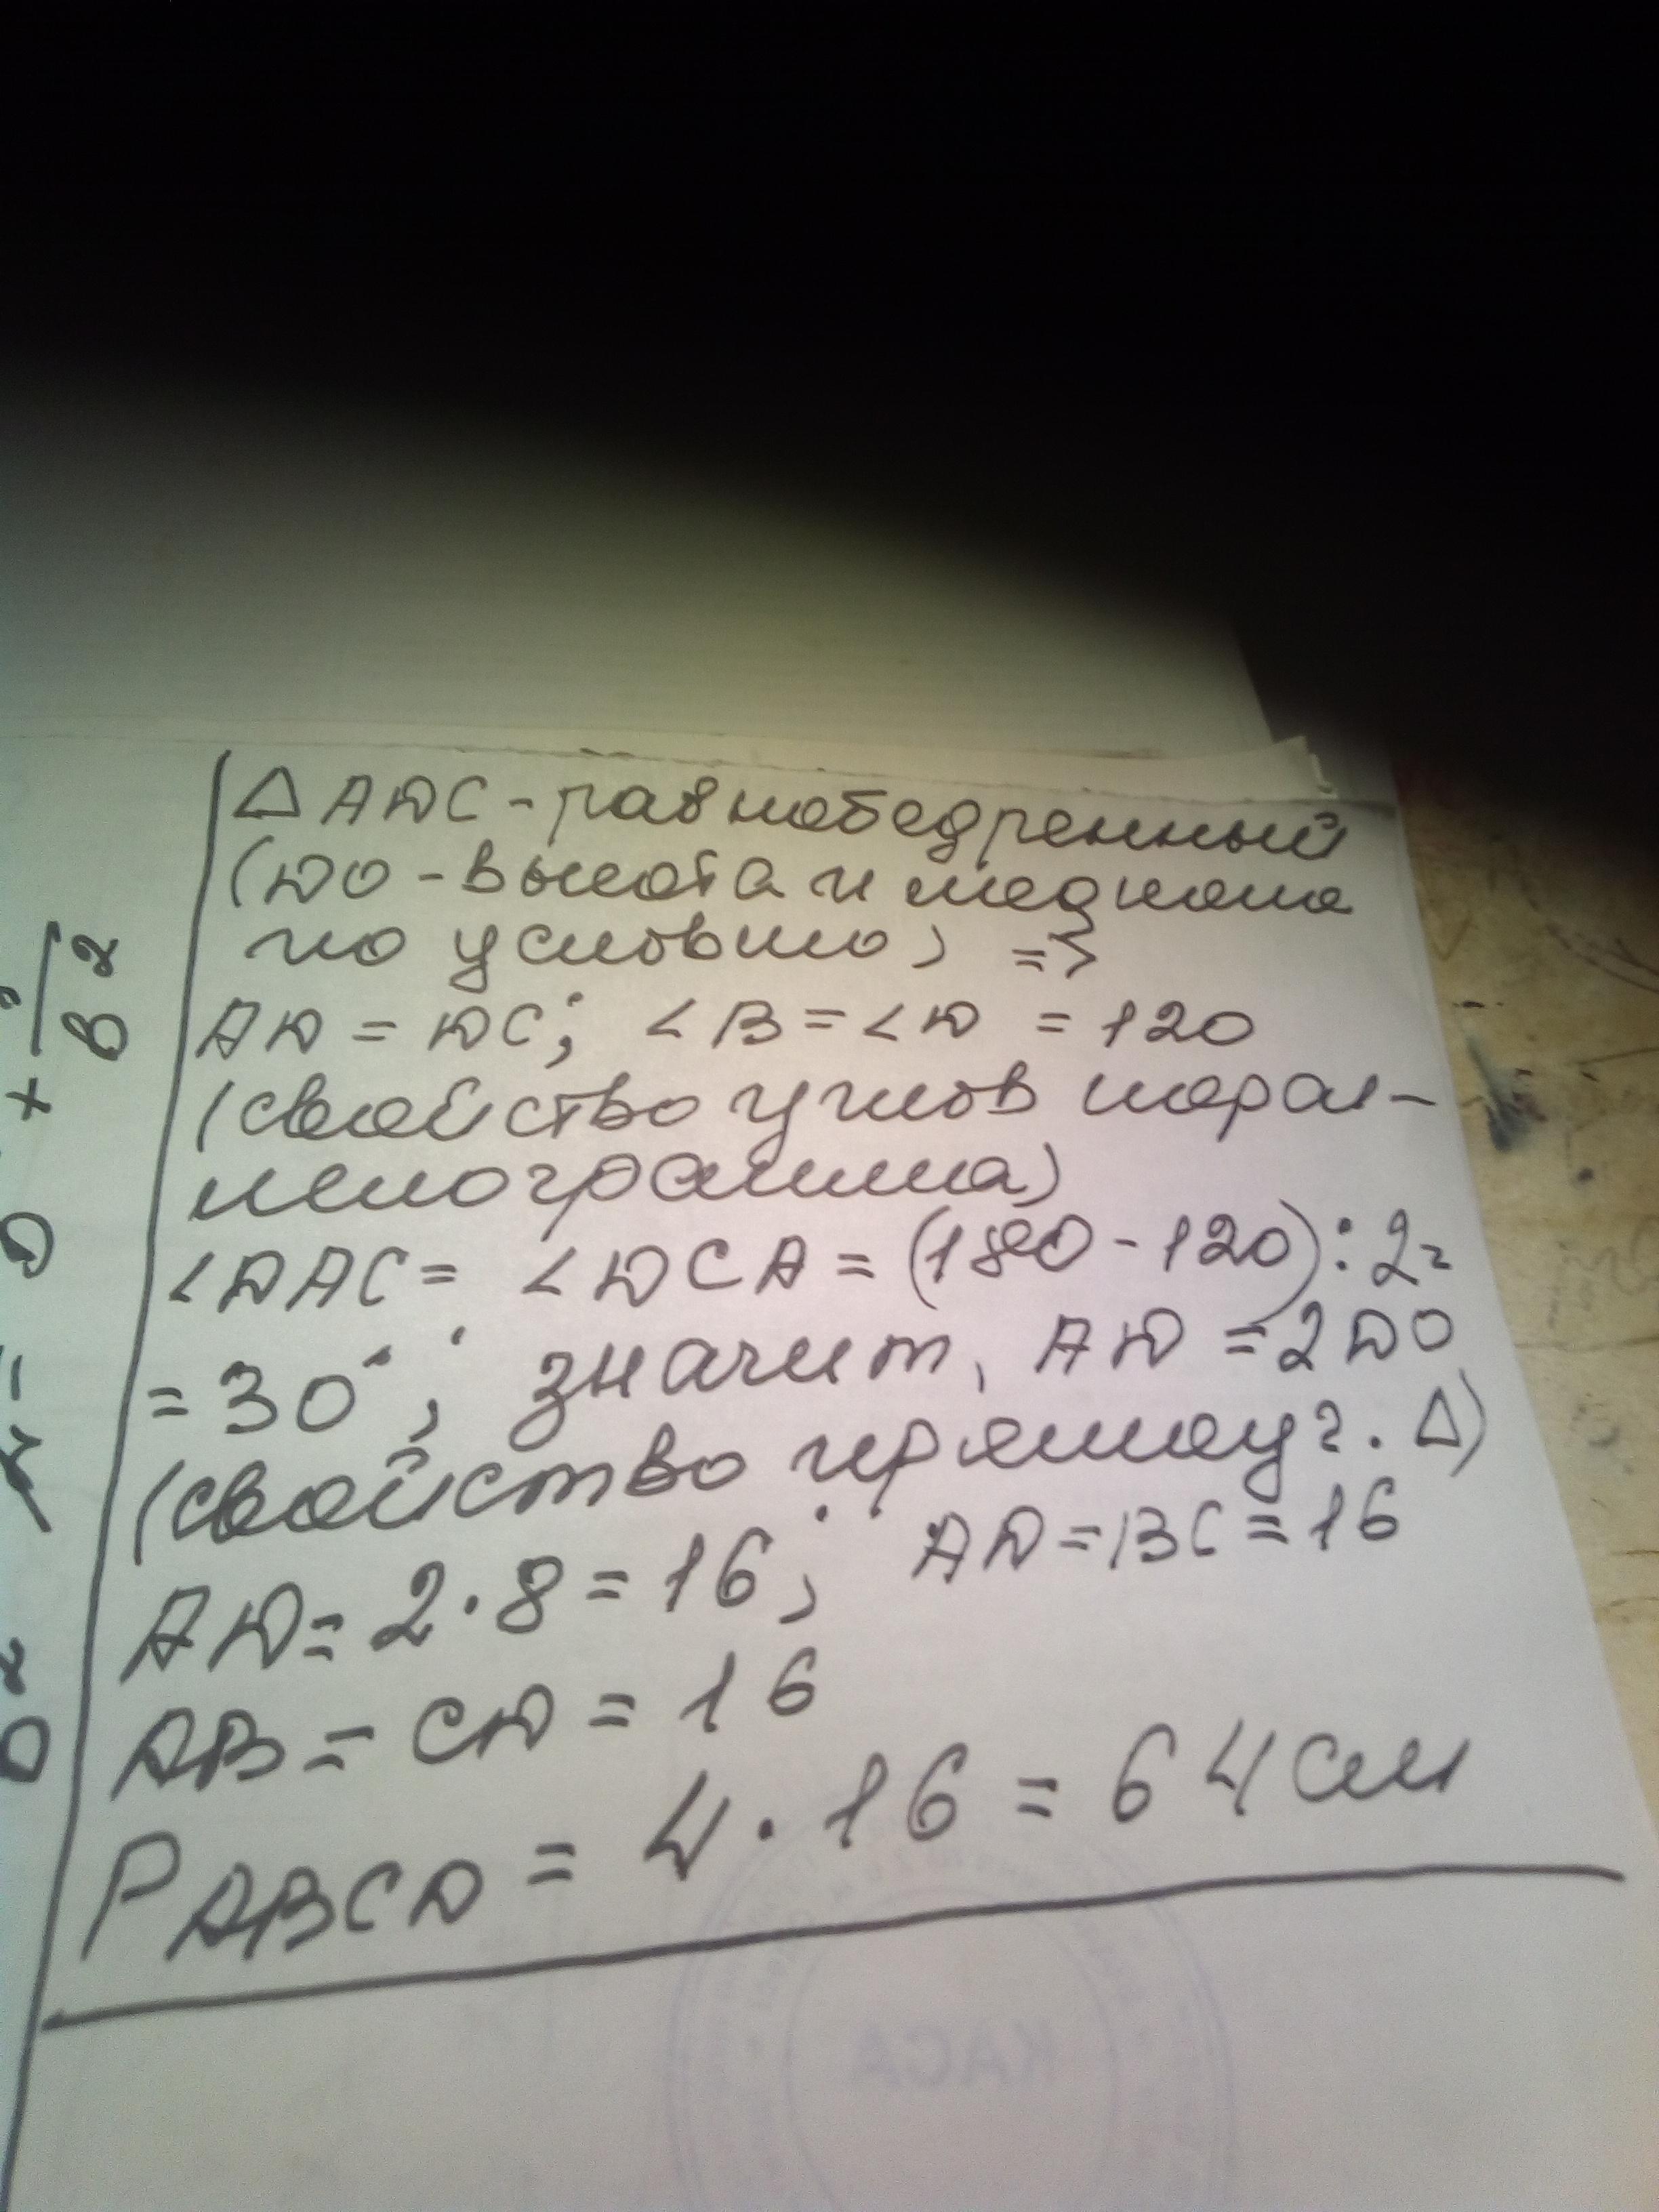 △ADC - равнобедренный
(DO - высота и медиана
по условию) =>
AD = DC; ∠B = ∠D = 120
(свойство углов парал-
лелограмма)
∠DAC = ∠DCA = (180 - 120) : 2 =
= 30°; значит, AD = 2DO
(свойство прямоуг. △)
AD = 2 · 8 = 16; AD = BC = 16
AB = CD = 16
P ABCD = 4 · 16 = 64 см
КАСА